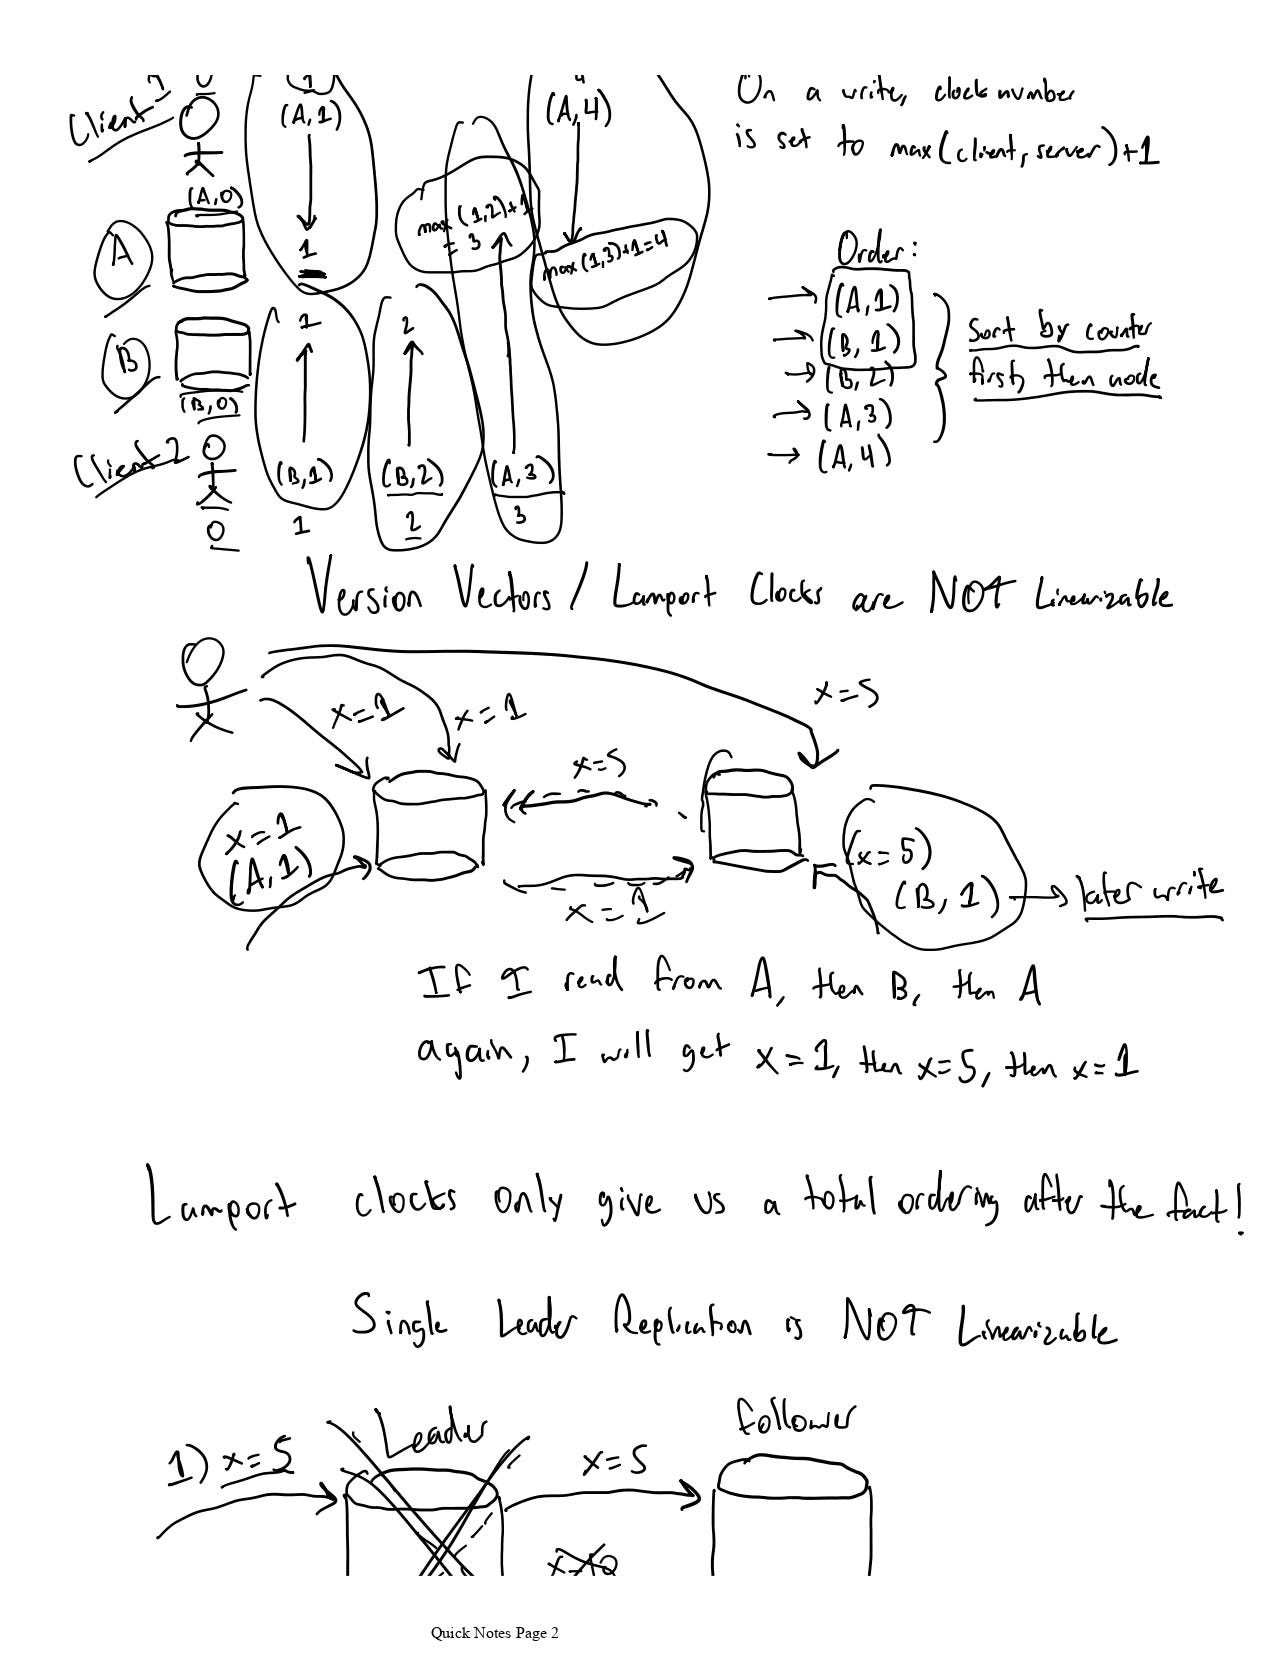 Client 1
(A,1)
(A,4)
On a write, clock number
is set to max(client, server)+1
(A,0)
A
1
max (1,2)+1
= 3
max (1,3)+1=4
Order:
(A,1)
(B,1)
(B,2)
(A,3)
(A,4)
Sort by counter
first, then node
B
(B,0)
1
2
Client 2
(B,1)
(B,2)
(A,3)
0
1
2
3
Version Vectors / Lamport Clocks are NOT Linearizable
x=1
x=1
x=5
x=5
x=1
(A,1)
x=1
(x=5)
(B,1)
later write
If I read from A, then B, then A
again, I will get x=1, then x=5, then x=1
Lamport clocks only give us a total ordering after the fact!
Single Leader Replication is NOT Linearizable
Leader
follower
1) x=5
x=5
Quick Notes Page 2